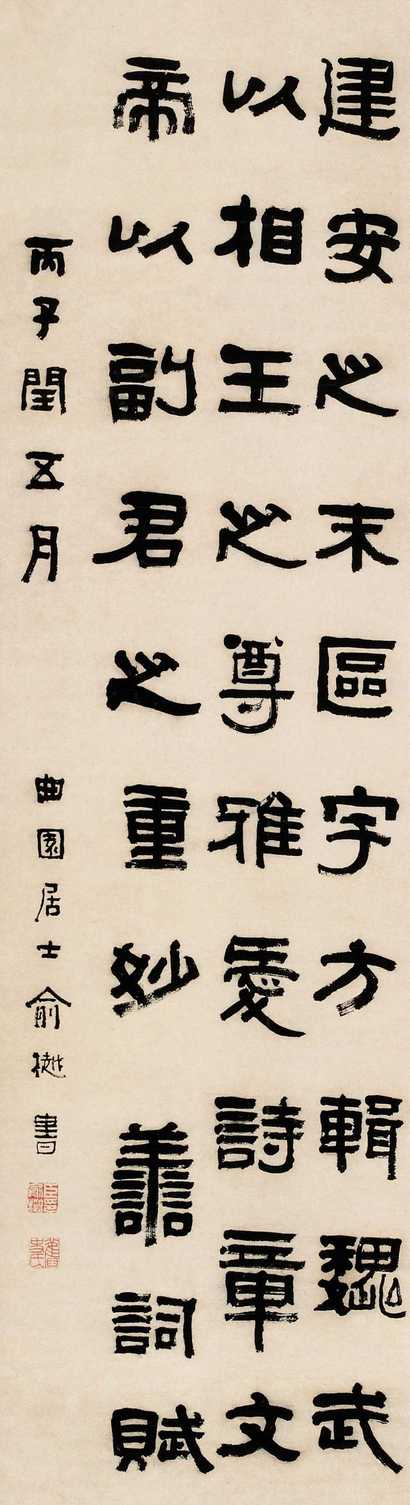 建安之末區宇方輯魏武
以相王之尊雅愛詩章文
帝以副君之重妙譱詞賦
丙子閏五月 曲園居士俞樾書